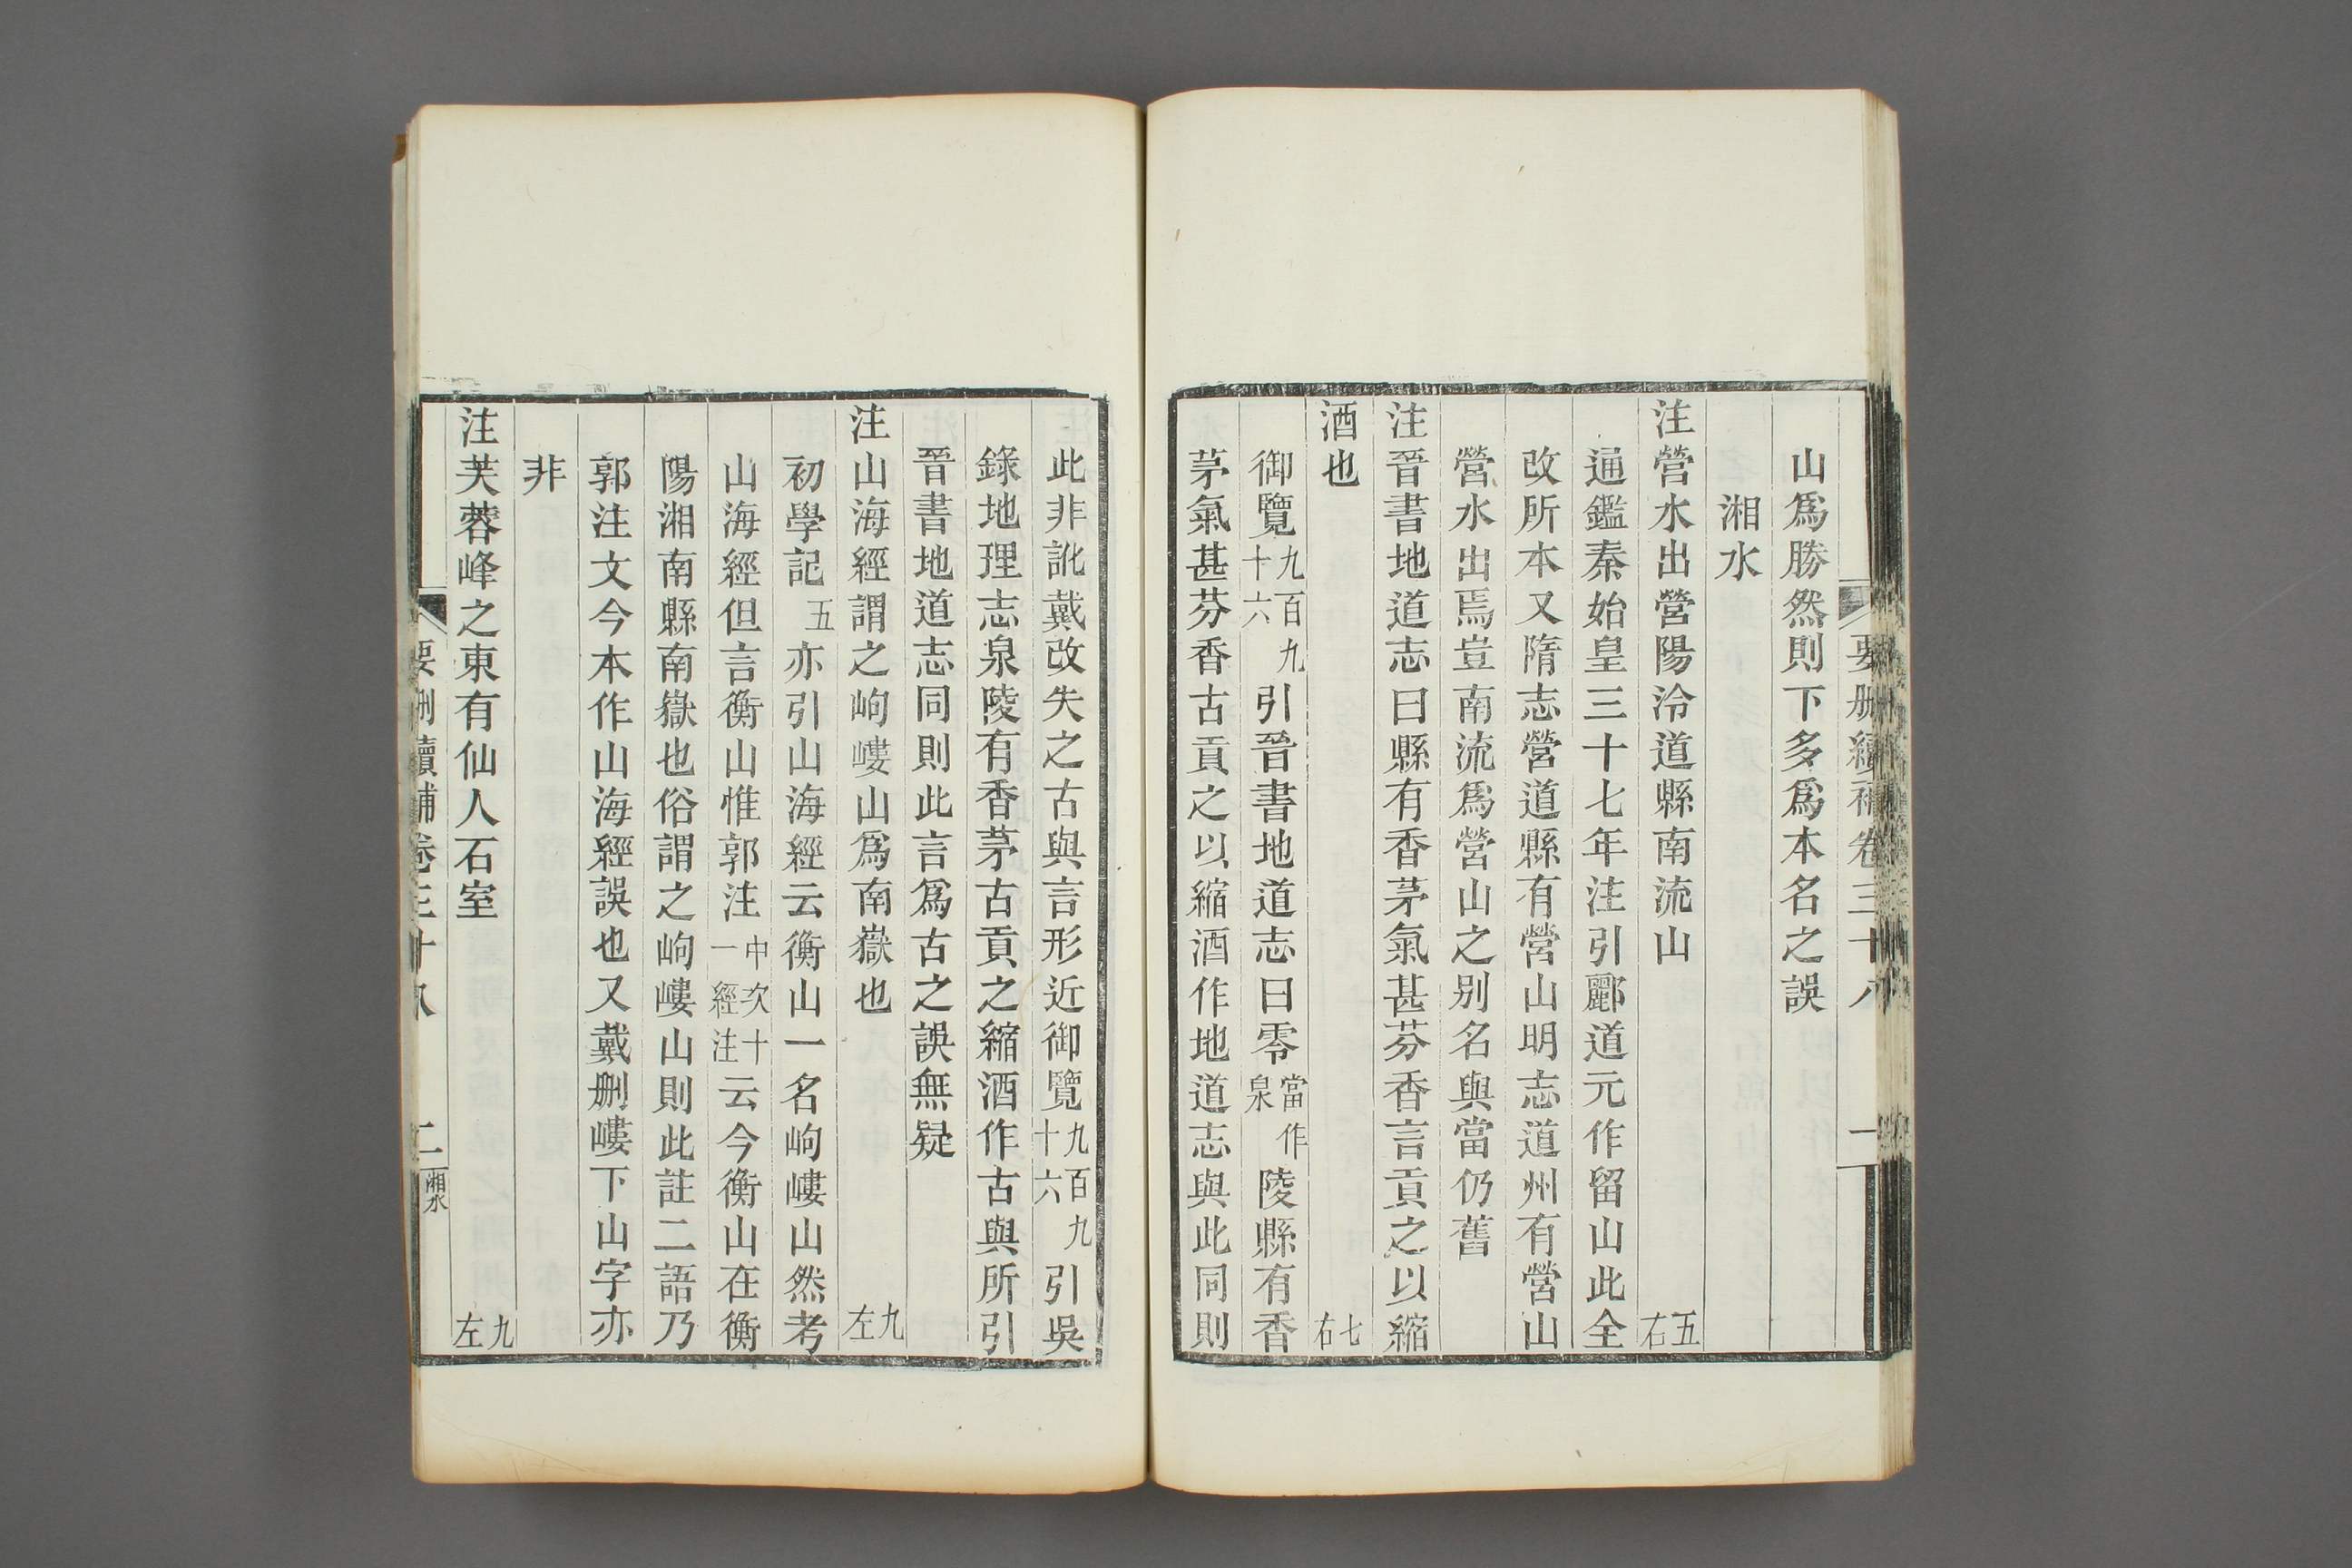 要刪續補卷三十八 一
山爲勝然則下多爲本名之誤
湘水
注營水出營陽泠道縣南流山 五右
通鑑秦始皇三十七年注引酈道元作留山此全
改所本又隋志營道縣有營山明志道州有營山
營水出焉豈南流爲營山之別名與當仍舊
注晉書地道志曰縣有香茅氣甚芬香言貢之以縮
酒也 七右
御覽九百九十六引晉書地道志曰零當作泉陵縣有香
茅氣甚芬香古貢之以縮酒作地道志與此同則
此非訛戴改失之古與言形近御覽九百九十六引吳
錄地理志泉陵有香茅古貢之縮酒作古與所引
晉書地道志同則此言爲古之誤無疑
注山海經謂之岣嶁山爲南嶽也 九左
初學記五亦引山海經云衡山一名岣嶁山然考
山海經但言衡山惟郭注中次十一經注云今衡山在衡
陽湘南縣南嶽也俗謂之岣嶁山則此註二語乃
郭注文今本作山海經誤也又戴刪嶁下山字亦
非
注芙蓉峰之東有仙人石室 九左
要刪續補卷三十八 二 湘水